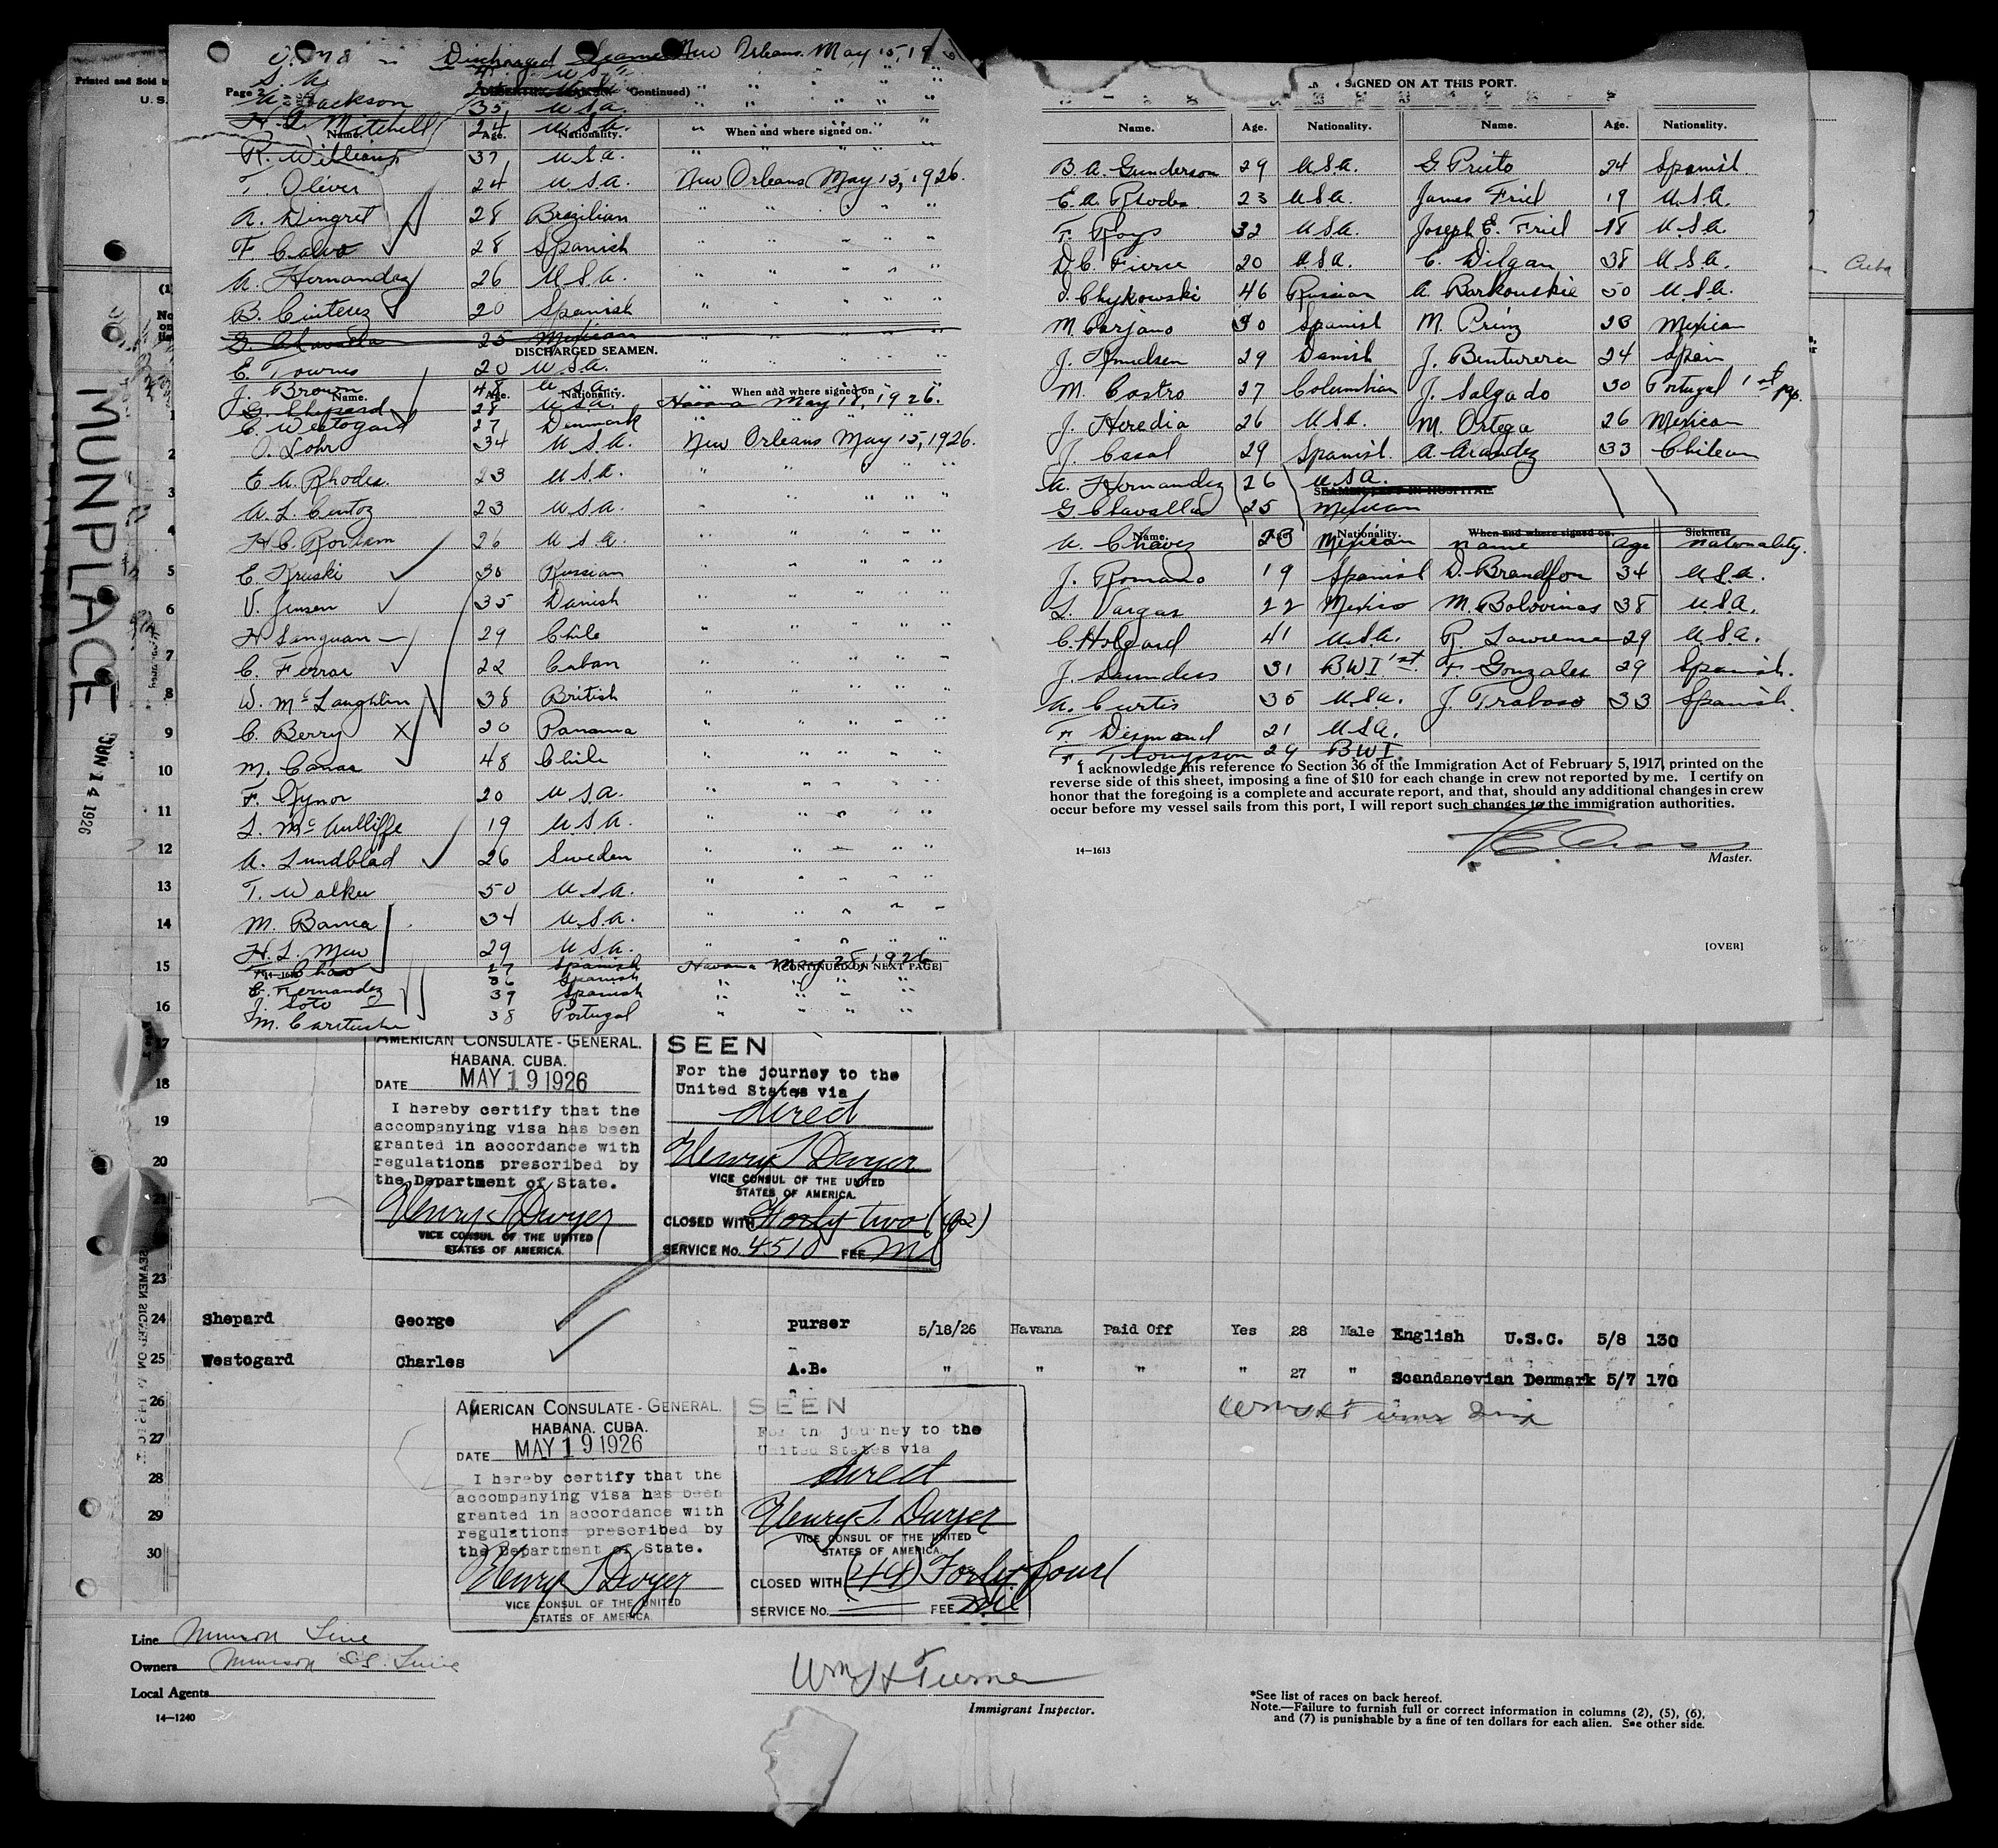 Printed and Sold b
U. S.
Discharged Seamen New Orleans May 15, 19
Page 2
Continued)
Jackson 35 U S A.
H. A. Mitchell 24 U S A.
Name. Age. Nationality. When and where signed on.
R. Williams 37 U S A.
T. Oliver 24 U S A. New Orleans May 15, 1926.
A. Dingret 28 Brazilian
F. Calvo 28 Spanish
A. Hernandez 26 U S A.
B. Cinterez 20 Spanish
G. Chavalla 25 Mexican
DISCHARGED SEAMEN.
E. Townes 20 U S A.
J. Brown 48 U S A.
Name. Age. Nationality. When and where signed on
G. Shepard 28 U S A. Havana May 18, 1926.
C. Westogard 27 Denmark
O. Lohr 34 U S A. New Orleans May 15, 1926.
E. A. Rhodes 23 U S A.
A. L. Centoz 23 U S A.
H. C. 26 U S A.
E. Kruski 30 Russian
V. Jensen 35 Danish
H Sanguan 29 Chile
C. Ferrar 22 Cuban
W. McLaughlin 38 British
C. Berry X 20 Panama
M. Canas 48 Chile
F. Rynor 20 U S A.
L. McAuliffe 19 U S A.
A. Lundblad 26 Sweden
T. Walker 50 U S A.
M. Barrea 34 U S A.
H. L. Mew 29 U S A.
27 Spanish Havana May 28, 1926
(CONTINUED ON NEXT PAGE)
E. Fernandez 36 Spanish
J. Soto 39 Spanish
M. 38 Portugal
SIGNED ON AT THIS PORT.
Name. Age. Nationality. Name. Age. Nationality.
B. A. Gunderson 29 U S A. G. Prieto 24 Spanish
E. A. Rhodes 23 U S A. James Friel 19 U. S A.
F. Roys 32 U S A. Joseph E. Friel 18 U. S A
D. C. Fierce 20 U S A. C. Dilgan 38 U S A.
J. Chykowski 46 Russian A. Barkouskie 50 U S A.
M. Carjano 30 Spanish M. Prinz 23 Mexican
J. Knudsen 29 Danish J. Benturera 24 Spain
M. Castro 27 Columbian J. Salgado 30 Portugal 1st pap.
J. Heredia 26 U S A. M. Ortega 26 Mexican
J. Casal 29 Spanish. A. Arandez 33 Chilean
A. Hernandez 26 U S A.
SEAMEN LEFT IN HOSPITAL.
G Chavalla 25 Mexican
Name. Nationality. When and where signed on. Sickness
A. Chavez 23 Mexican name age nationality.
J. Romano 19 Spanish D. Brandfon 34 U S A.
L. Vargas 22 Mexico M. Bolovinas 38 U S A.
C. Holgard 41 U S A. R. Lawrence 29 U S A.
J. Saunders 31 BWI 1st. F. Gonzales 29 Spanish.
A. Curtis 35 U S A. J. Trabaso 33 Spanish.
F. Desmond 21 U S A.
F. Thompson 29 BWI.
I acknowledge this reference to Section 36 of the Immigration Act of February 5, 1917, printed on the
reverse side of this sheet, imposing a fine of $10 for each change in crew not reported by me. I certify on
honor that the foregoing is a complete and accurate report, and that, should any additional changes in crew
occur before my vessel sails from this port, I will report such changes to the immigration authorities.
14—1613
Master.
[OVER]
Cuba
MUNPLACE
JUN 14 1926
1
2
3
4
5
6
7
8
9
10
11
12
13
14
15
16
17
18
19
20
21
23
AMERICAN CONSULATE-GENERAL.
HABANA. CUBA.
DATE MAY 19 1926
I hereby certify that the
accompanying visa has been
granted in accordance with
regulations prescribed by
the Department of State.
Henry T Dwyer
VICE CONSUL OF THE UNITED
STATES OF AMERICA.
SEEN
For the journey to the
United States via
direct
Henry T Dwyer
VICE CONSUL OF THE UNITED
STATES OF AMERICA.
CLOSED WITH Forty two (42)
SERVICE No. 4510 FEE Nil
24 Shepard George purser 5/18/26 Havana Paid Off Yes 28 Male English U.S.C. 5/8 130
25 Westogard Charles A.B. " " " " 27 " Scandanevian Denmark 5/7 170
26
27
28
29
30
AMERICAN CONSULATE-GENERAL.
HABANA. CUBA.
DATE MAY 19 1926
I hereby certify that the
accompanying visa has been
granted in accordance with
regulations prescribed by
the Department of State.
Henry T Dwyer
VICE CONSUL OF THE UNITED
STATES OF AMERICA.
SEEN
For the journey to the
United States via
direct
Henry T. Dwyer
VICE CONSUL OF THE UNITED
STATES OF AMERICA.
CLOSED WITH (44) Forty four
SERVICE No. FEE Nil
Line Munson Line
Owners Munson SS. Line
Local Agents
14—1240
Wm H Turner
Immigrant Inspector.
*See list of races on back hereof.
Note.—Failure to furnish full or correct information in columns (2), (5), (6),
and (7) is punishable by a fine of ten dollars for each alien. See other side.